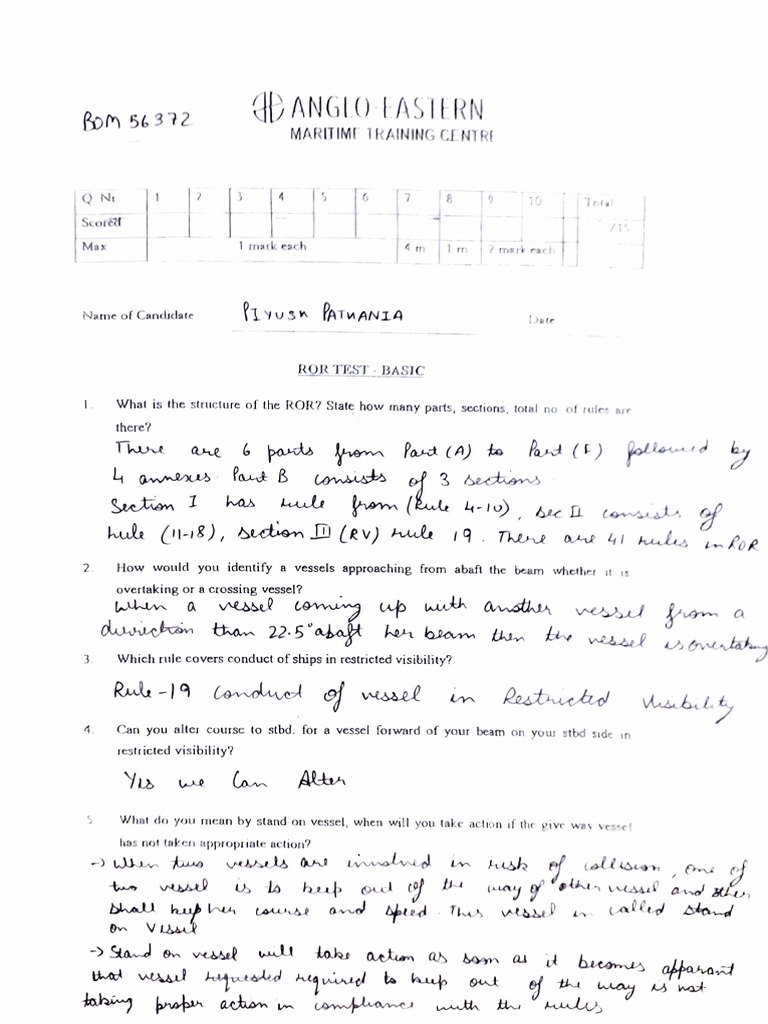 BOM 56372
ANGLO-EASTERN
MARITIME TRAINING CENTRE
Q Nr 1 2 3 4 5 6 7 8 9 10 Total
Scored /15
Max 1 mark each 4 m 1 m 2 mark each
Name of Candidate PIYUSH PATHANIA Date
ROR TEST - BASIC
1. What is the structure of the ROR? State how many parts, sections, total no of rules are
there?
There are 6 parts from Part (A) to Part (F) followed by
4 annexes Part B consists of 3 sections
Section I has rule from (Rule 4-10), sec II consists of
rule (11-18), section III (RV) rule 19. There are 41 rules in ROR
2. How would you identify a vessels approaching from abaft the beam whether it is
overtaking or a crossing vessel?
When a vessel coming up with another vessel from a
dirrection than 22.5° abaft her beam then the vessel is overtaking
3. Which rule covers conduct of ships in restricted visibility?
Rule-19 Conduct of vessel in Restricted Visibility
4. Can you alter course to stbd. for a vessel forward of your beam on your stbd side in
restricted visibility?
Yes we Can Alter
5 What do you mean by stand on vessel, when will you take action if the give way vessel
has not taken appropriate action?
→ When two vessels are involved in risk of collision, one of
two vessel is to keep out of the way of other vessel and other
shall keep her course and speed. This vessel in called stand
on vessel
→ Stand on vessel will take action as soon as it becomes apparant
that vessel requested required to keep out of the way is not
taking proper action in compliance with the rules